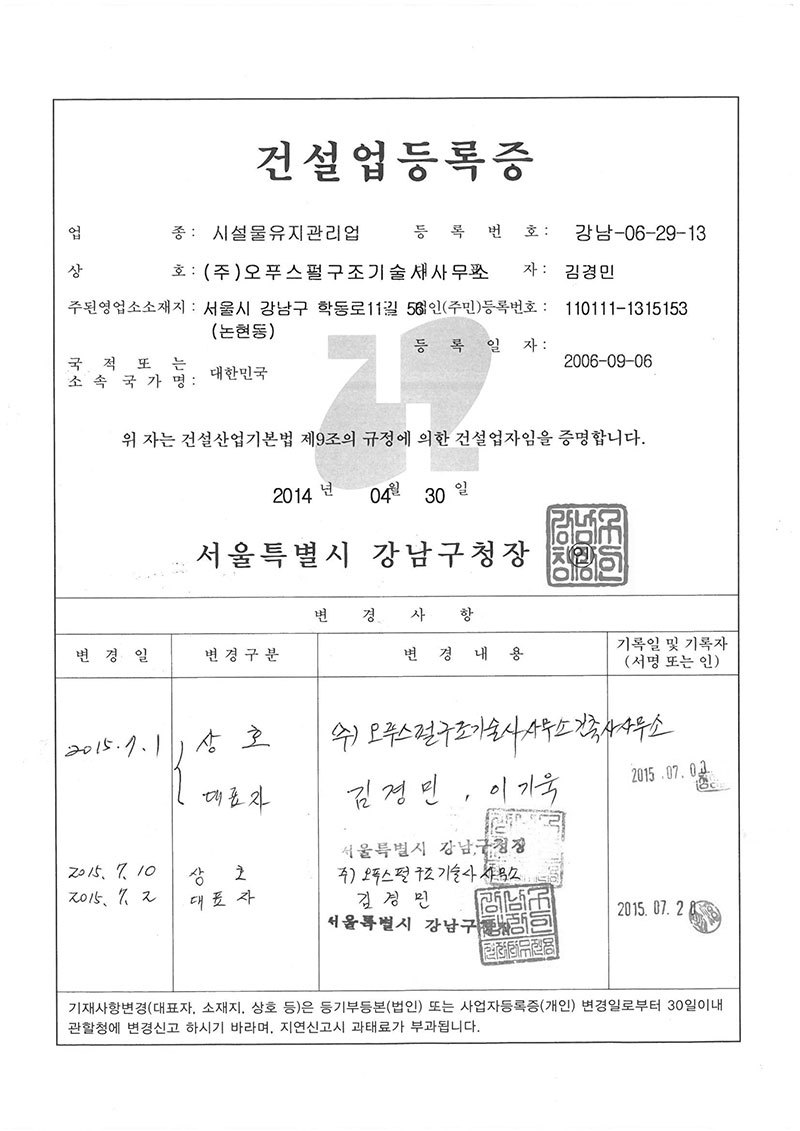 건설업등록증
업 종 : 시설물유지관리업 등 록 번 호 : 강남-06-29-13
상 호 : (주)오푸스펄구조기술사사무소 자 : 김경민
주된영업소소재지 : 서울시 강남구 학동로11길 56 법인(주민)등록번호 : 110111-1315153
(논현동)
등 록 일 자 : 2006-09-06
국 적 또 는
소 속 국 가 명 : 대한민국
위 자는 건설산업기본법 제9조의 규정에 의한 건설업자임을 증명합니다.
2014 년 04월 30 일
서울특별시 강남구청장 인
변 경 사 항
변 경 일 변 경 구 분 변 경 내 용 기록일 및 기록자
(서명 또는 인)
2015. 7. 1 상 호 (주) 오푸스펄구조기술사사무소건축사사무소
대표자 김경민, 이기욱 2015. 07. 0
서울특별시 강남구청장
2015. 7. 10 상 호 주) 오푸스펄구조기술사사무소
2015. 7. 2 대표자 김경민
서울특별시 강남구청장 2015. 07. 2
기재사항변경(대표자, 소재지, 상호 등)은 등기부등본(법인) 또는 사업자등록증(개인) 변경일로부터 30일이내
관할청에 변경신고 하시기 바라며, 지연신고시 과태료가 부과됩니다.